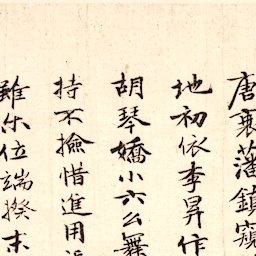 唐衰藩鎮窺
地初依李昇作
胡琴嬌小六么舞
持不撿惜進用
雖尓位端揆末